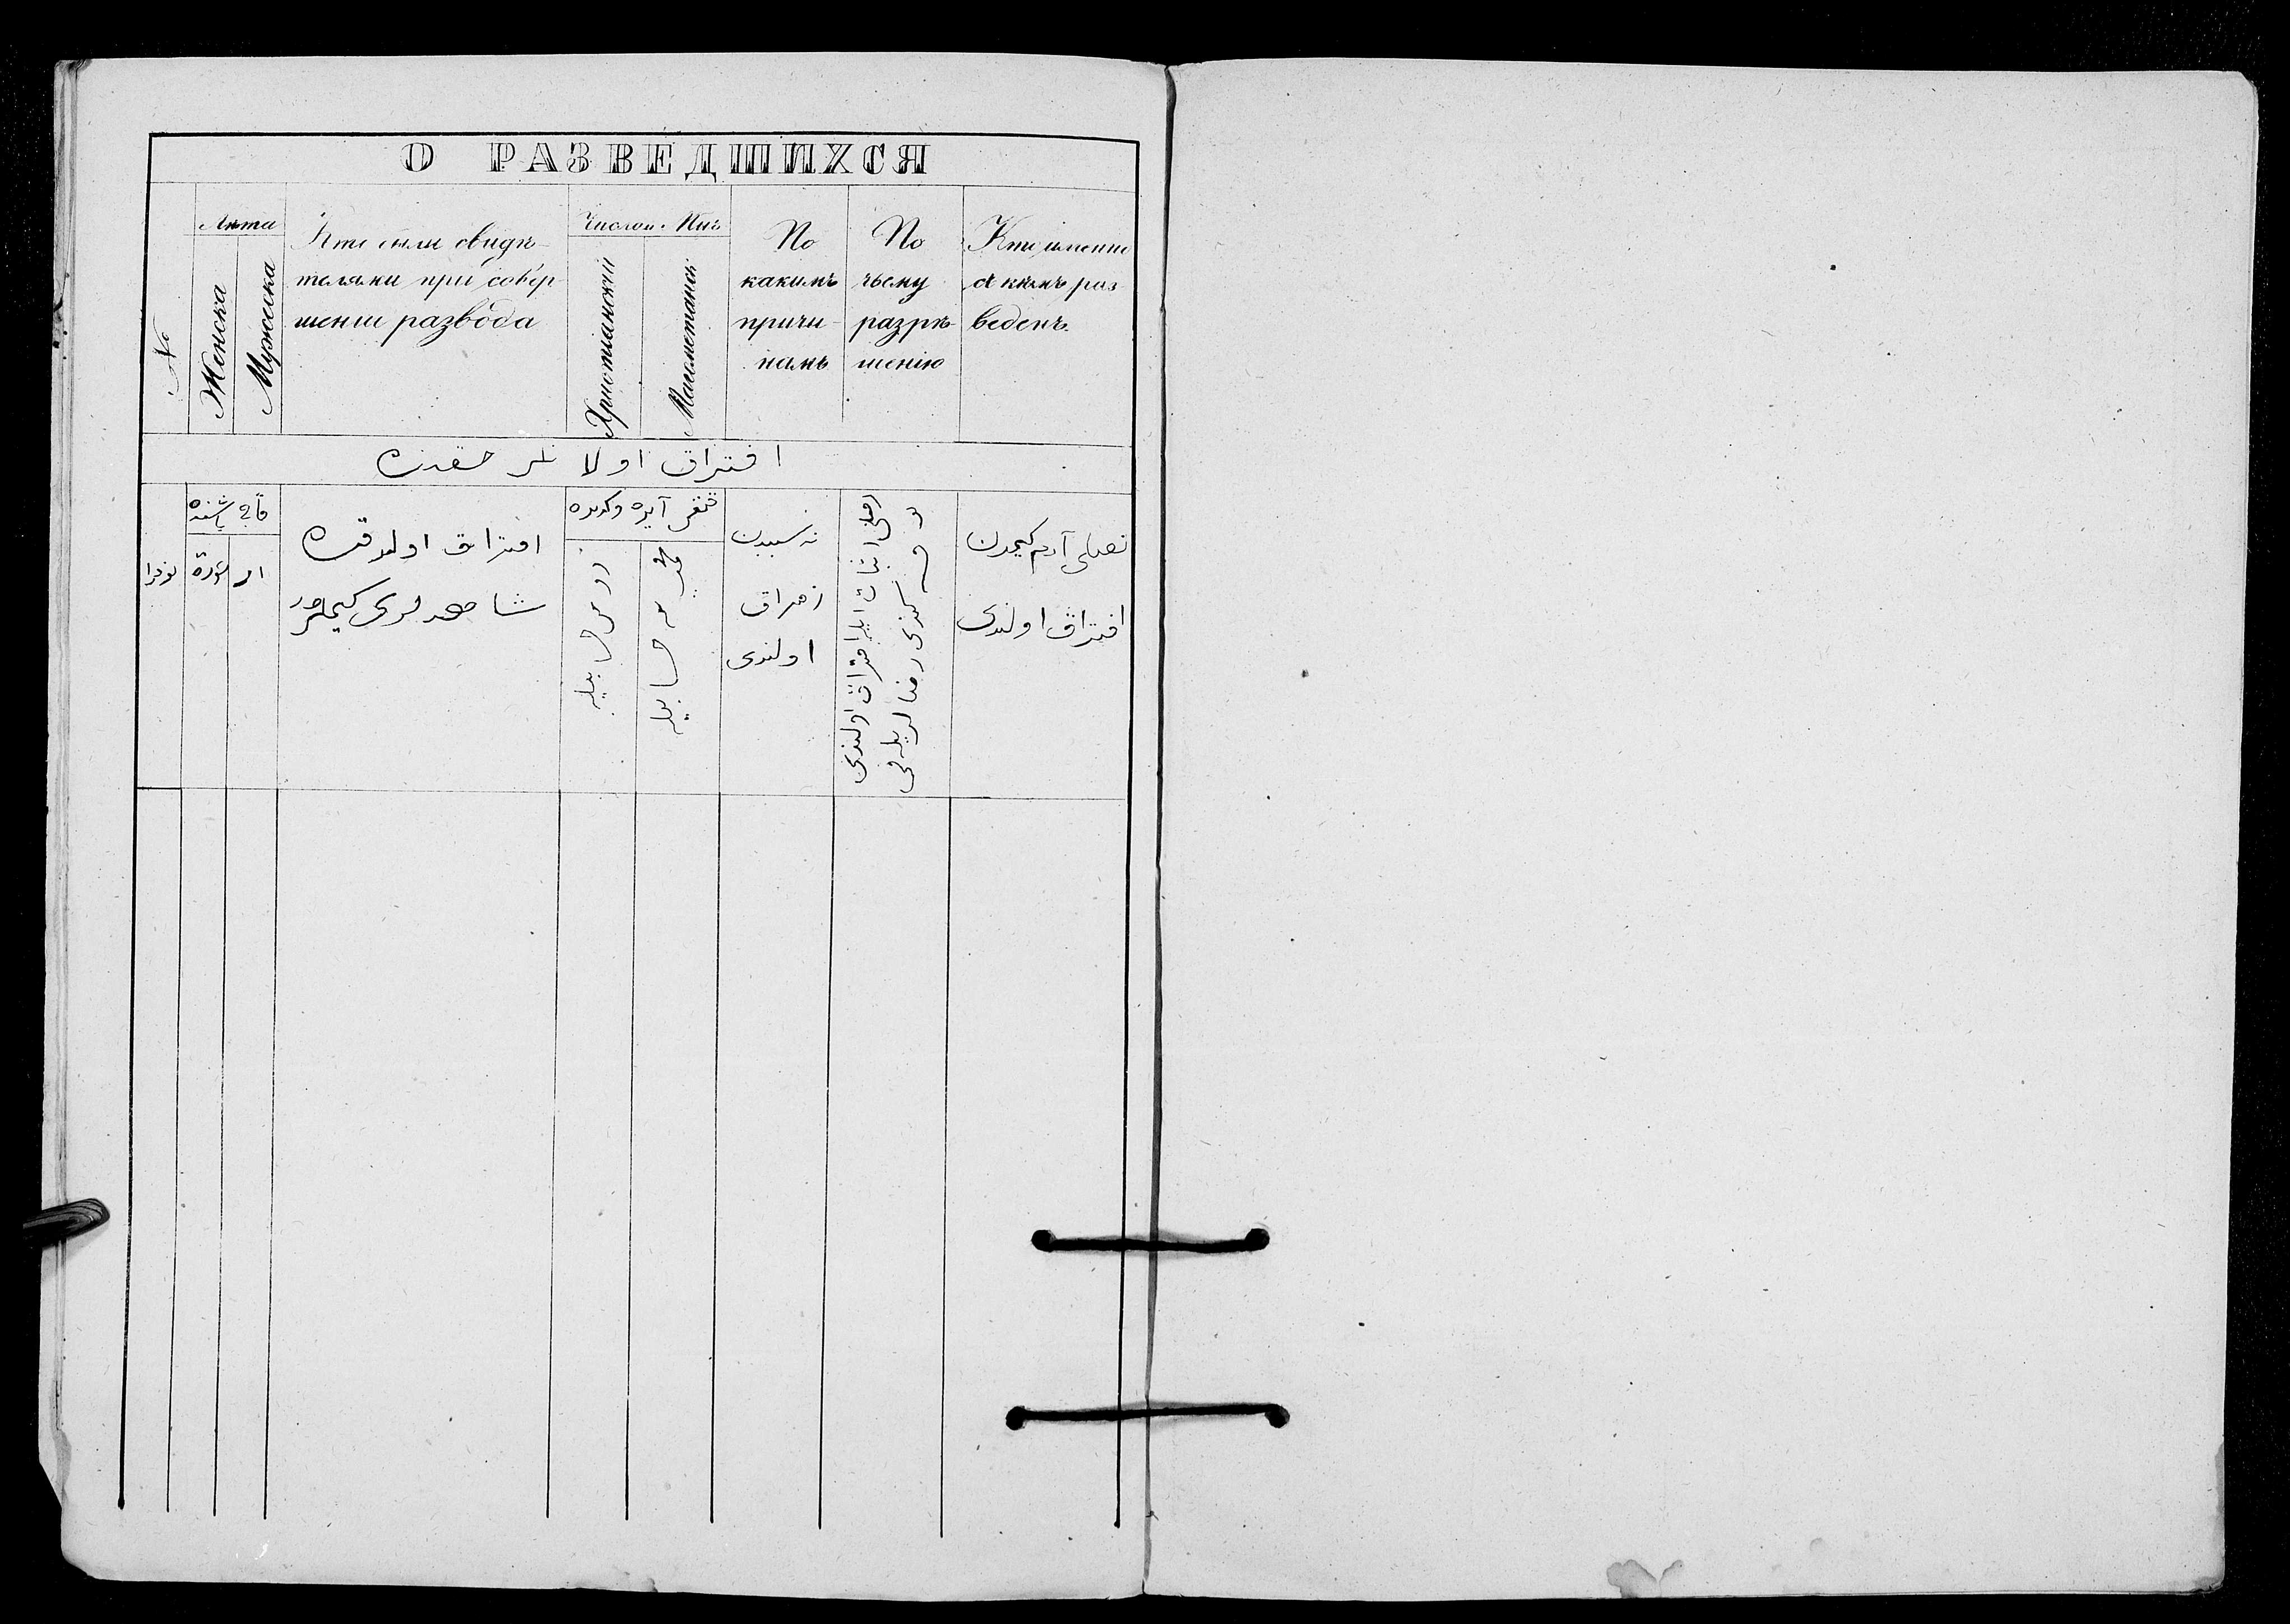 О РАЗВЕДШИХСЯ
№
Лѣта
Женска
Мужеска
Кто были свидѣ-
телями при совер-
шеніи развода
Число и
Христіанскій
Магометанск.
По
какимъ
причи-
намъ
По
чьему
разрѣ-
шенію
Кто именно
съ кѣмъ раз-
веденъ.
افتراق اولانلر حقنده
قاچ ياشنده
ار
عورة
افتراق اولدقده
شاهدلرى كيملردر
آيده وكونده
نه سببدن
افتراق
اولندى
آدم كيمدن
افتراق اولندى